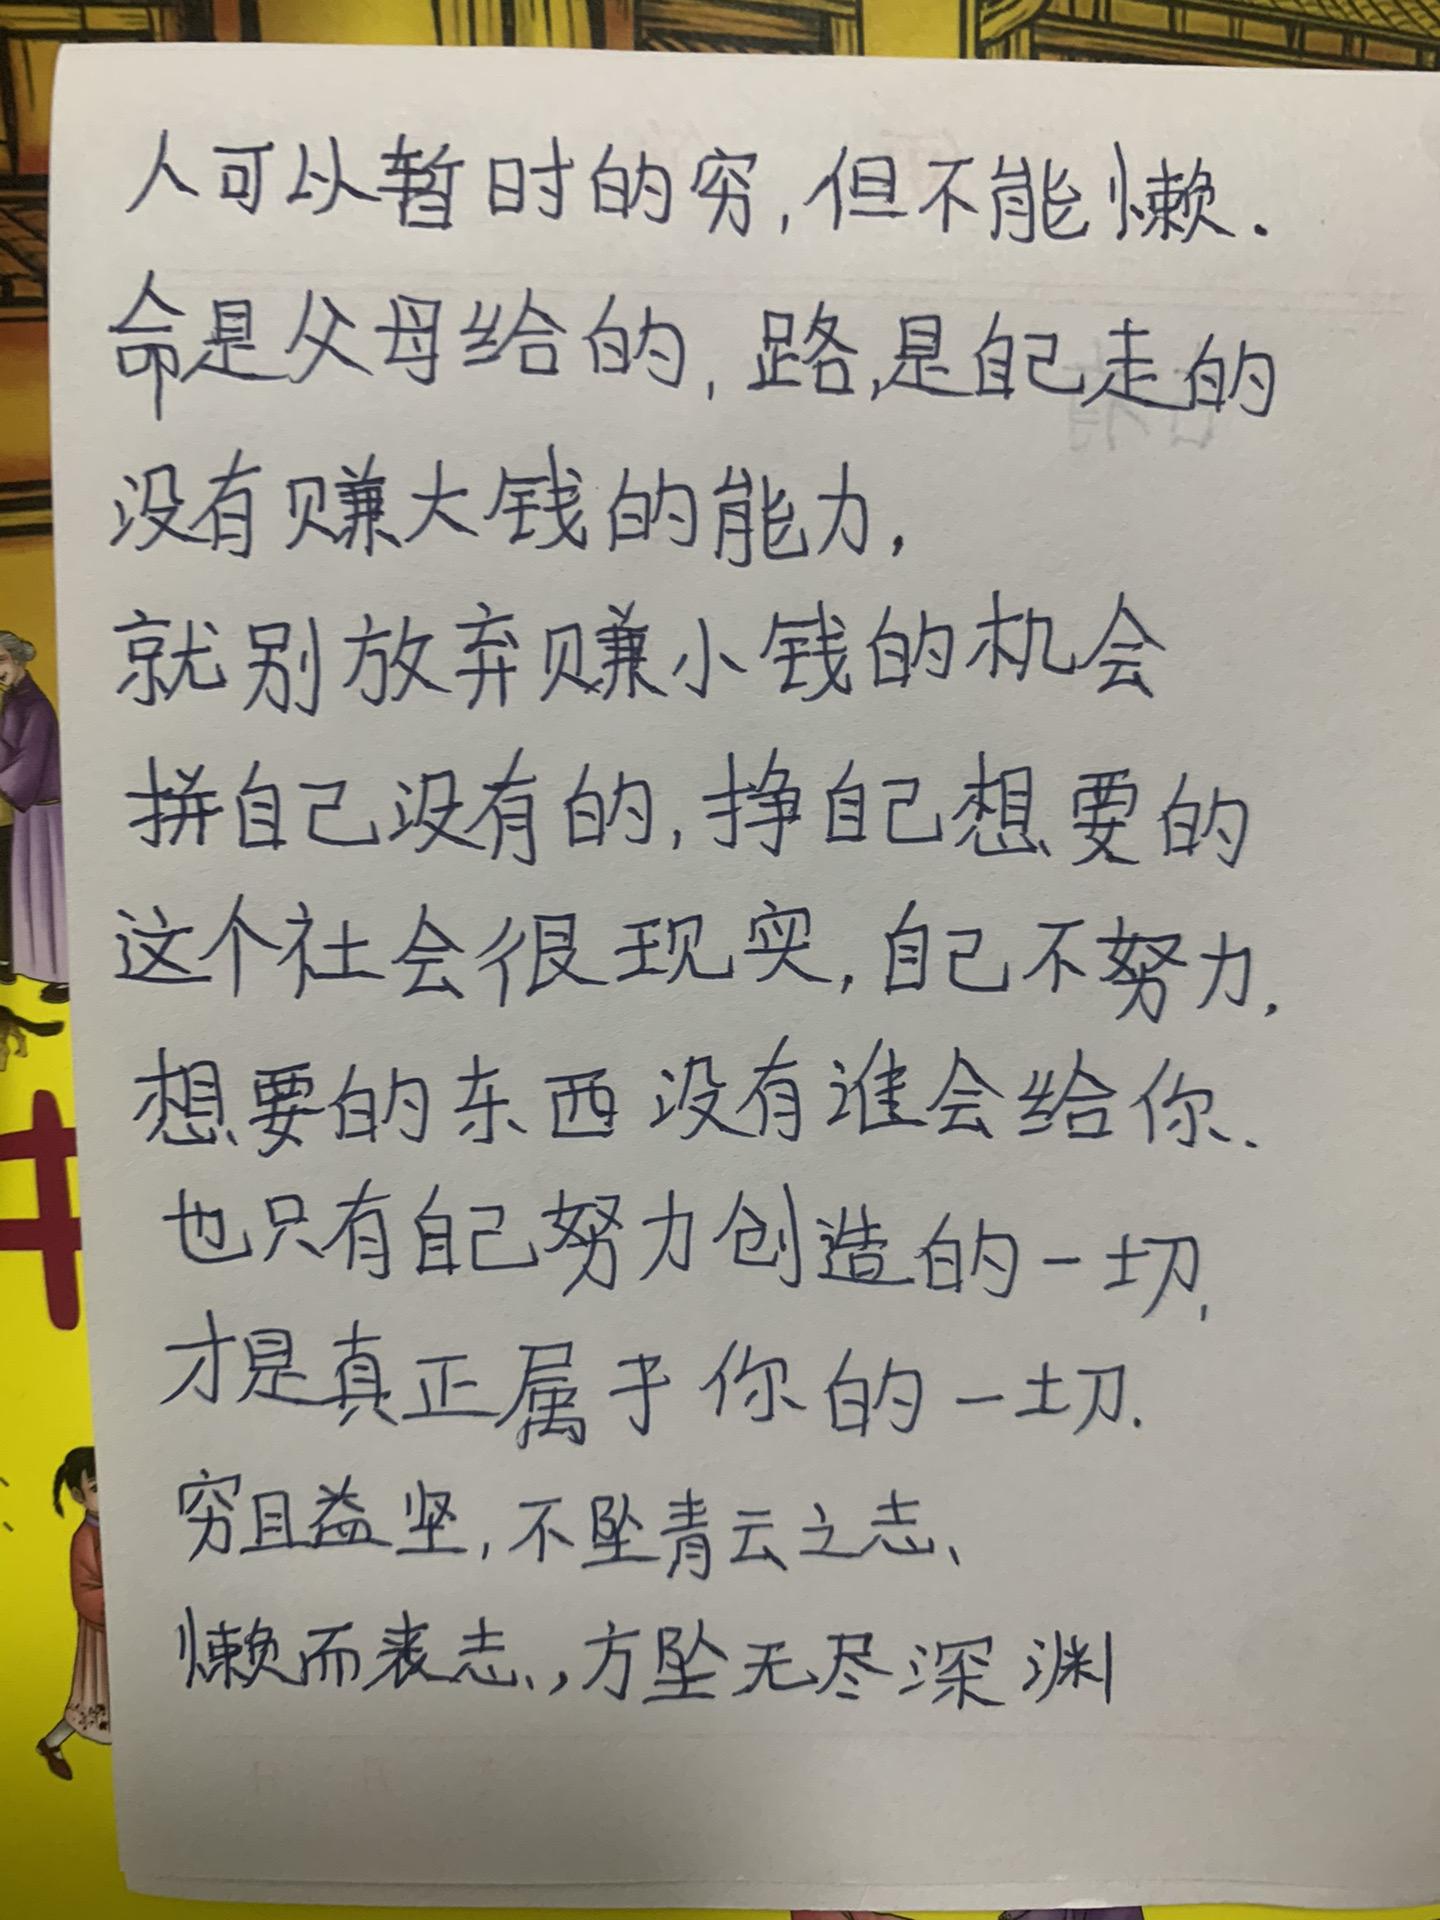 人可以暂时的穷,但不能懒.
命是父母给的,路,是自己走的
没有赚大钱的能力,
就别放弃赚小钱的机会
拼自己没有的,挣自己想要的
这个社会很现实,自己不努力,
想要的东西没有谁会给你、
也只有自己努力创造的一切,
才是真正属于你的一切.
穷且益坚,不坠青云之志、
懒而丧志、,方坠无尽深渊